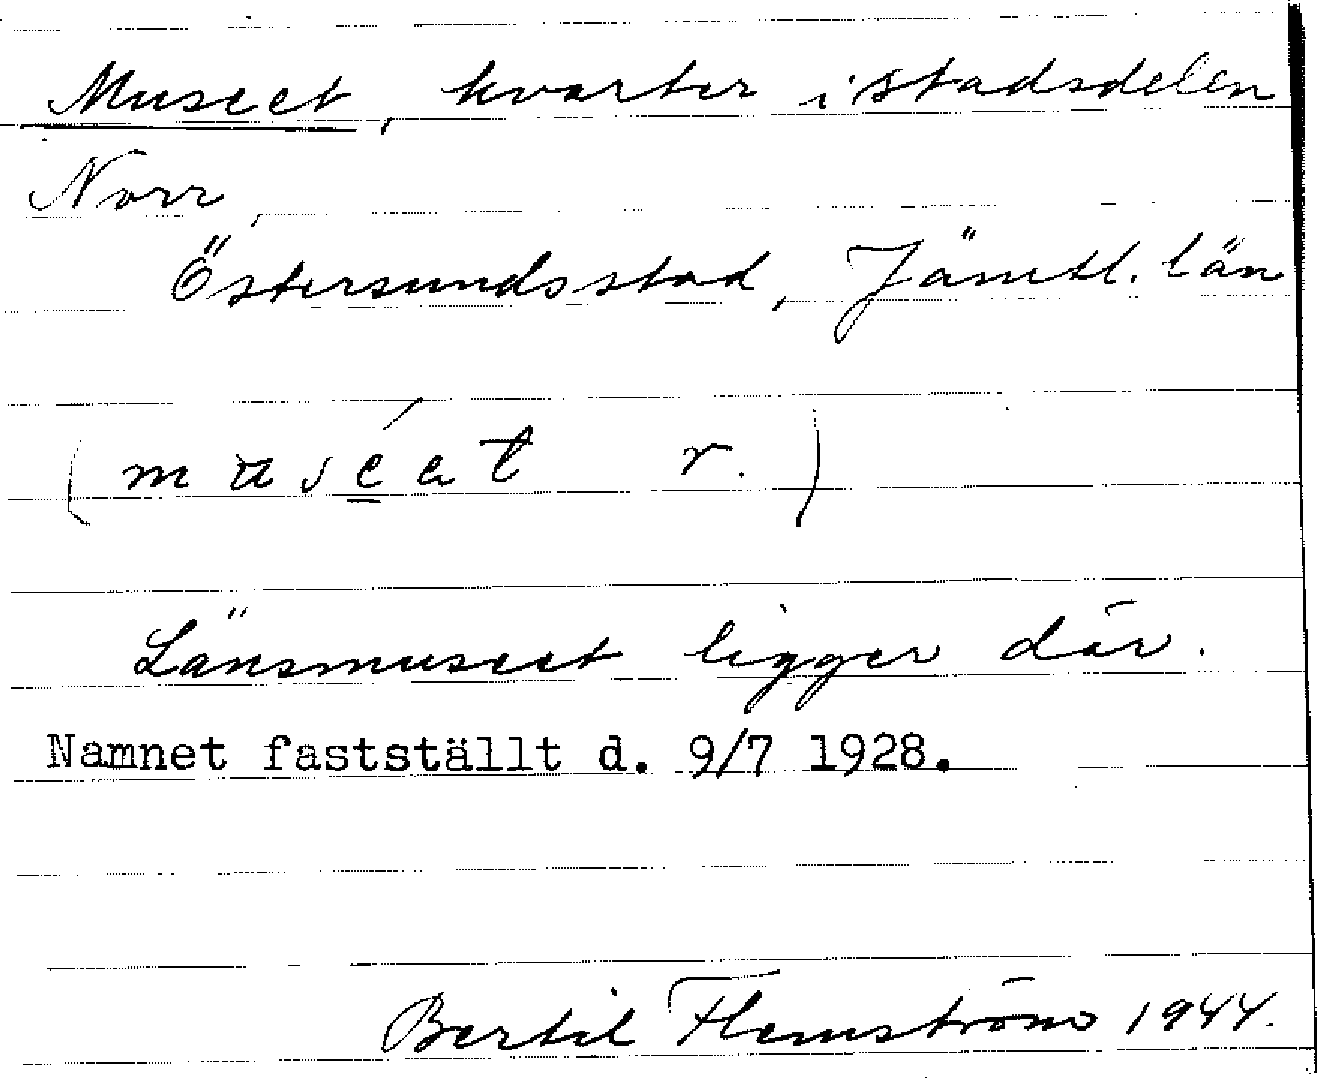 Museet, kvarter i stadsdelen
Norr,
Östersunds stad, Jämtl. län
Länsmuseet ligger där.
Namnet fastställt d. 9/7 1928.
Bertil Flemström 1944.